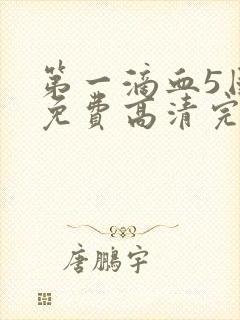 第一滴血5
免费高清完
唐鹏宇